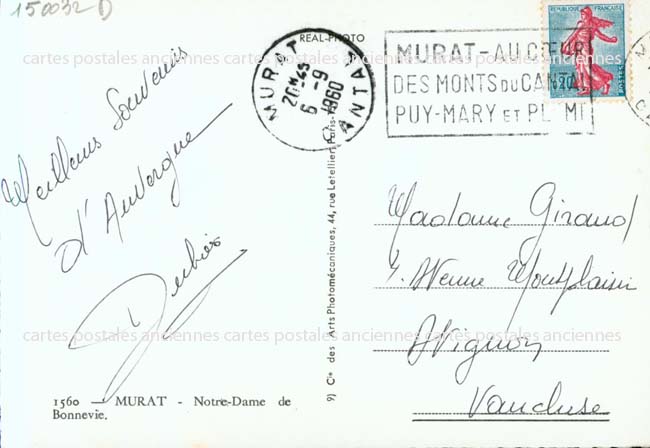 150032 D
cartes postales anciennes cartes postales anciennes cartes postales anciennes
REAL-PHOTO
MURAT
20H45
6-9
1960
CANTAL
MURAT-AU CŒUR
DES MONTS DU CANTAL
PUY-MARY ET PL MI
REPUBLIQUE FRANÇAISE
0,20
POSTES
Meilleurs Souvenirs
d'Auvergne
Madame Giraud
Avenue Montplaisir
Avignon
Vaucluse
9) Cie des Arts Photomécaniques, 44, rue Letellier, Paris
cartes postales anciennes cartes postales anciennes cartes postales anciennes
1560 — MURAT - Notre-Dame de
Bonnevie.